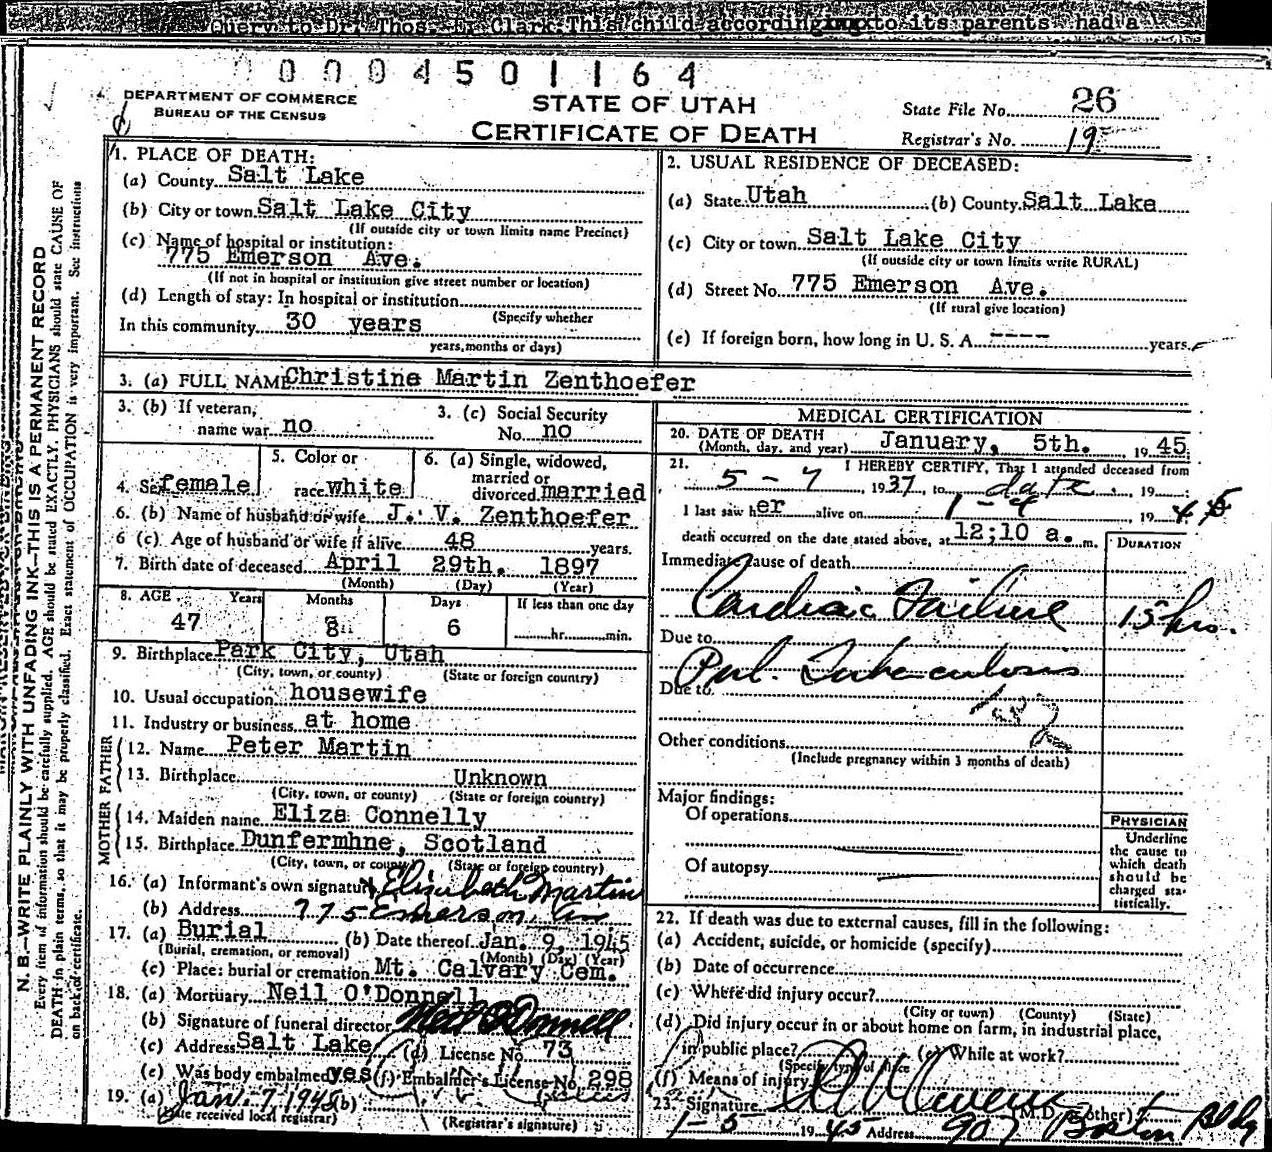 Query to Dr. Thos. Clark. This child according to its parents had a
0004501164
DEPARTMENT OF COMMERCE
BUREAU OF THE CENSUS
STATE OF UTAH
CERTIFICATE OF DEATH
State File No. 26
Registrar's No. 19
1. PLACE OF DEATH:
(a) County Salt Lake
(b) City or town Salt Lake City
(If outside city or town limits name Precinct)
(c) Name of hospital or institution:
775 Emerson Ave.
(If not in hospital or institution give street number or location)
(d) Length of stay: In hospital or institution
(Specify whether
In this community 30 years
years, months or days)
2. USUAL RESIDENCE OF DECEASED:
(a) State Utah (b) County Salt Lake
(c) City or town Salt Lake City
(If outside city or town limits write RURAL)
(d) Street No. 775 Emerson Ave.
(If rural give location)
(e) If foreign born, how long in U. S. A. ---- years.
3. (a) FULL NAME Christine Martin Zenthoefer
3. (b) If veteran,
name war no
3. (c) Social Security
No. no
4. Sex female
5. Color or
race white
6. (a) Single, widowed,
married or
divorced married
6. (b) Name of husband or wife J. V. Zenthoefer
6 (c) Age of husband or wife if alive 48 years.
7. Birth date of deceased April 29th. 1897
(Month) (Day) (Year)
8. AGE Years Months Days If less than one day
47 8 6 hr. min.
9. Birthplace Park City, Utah
(City, town, or county) (State or foreign country)
10. Usual occupation housewife
11. Industry or business at home
FATHER
12. Name Peter Martin
13. Birthplace Unknown
(City, town, or county) (State or foreign country)
MOTHER
14. Maiden name Eliza Connelly
15. Birthplace Dunfermhne, Scotland
(City, town, or county) (State or foreign country)
16. (a) Informant's own signature Elizabeth Martin
(b) Address 775 Emerson Ave
17. (a) Burial (b) Date thereof Jan. 9, 1945
(Burial, cremation, or removal) (Month) (Day) (Year)
(c) Place: burial or cremation Mt. Calvary Cem.
18. (a) Mortuary Neil O'Donnell
(b) Signature of funeral director Neil O'Donnell
(c) Address Salt Lake (d) License No. 73
(e) Was body embalmed yes (f) Embalmer's License No. 298
19. (a) Jan. 7-1945 (b)
(Date received local registrar) (Registrar's signature)
MEDICAL CERTIFICATION
20. DATE OF DEATH January, 5th. 1945
(Month, day, and year)
21. I HEREBY CERTIFY, That I attended deceased from
5 - 7, 1937, to date, 19
I last saw her alive on 1-4 1945
death occurred on the date stated above, at 12;10 a. m.
DURATION
Immediate cause of death
Cardiac Failure 15 hrs.
Due to
Pul. Tuberculosis
Due to
Other conditions
(Include pregnancy within 3 months of death)
Major findings:
Of operations
Of autopsy
PHYSICIAN
Underline
the cause to
which death
should be
charged sta-
tistically.
22. If death was due to external causes, fill in the following:
(a) Accident, suicide, or homicide (specify)
(b) Date of occurrence
(c) Where did injury occur?
(City or town) (County) (State)
(d) Did injury occur in or about home on farm, in industrial place,
in public place? (e) While at work?
(Specify type of place)
(f) Means of injury
23. Signature (M.D. or other)
1-5 1945 Address 907 Boston Bldg
N. B.—WRITE PLAINLY WITH UNFADING INK—THIS IS A PERMANENT RECORD
Every item of information should be carefully supplied. AGE should be stated EXACTLY. PHYSICIANS should state CAUSE OF
DEATH in plain terms, so that it may be properly classified. Exact statement of OCCUPATION is very important. See instructions
on back of certificate.